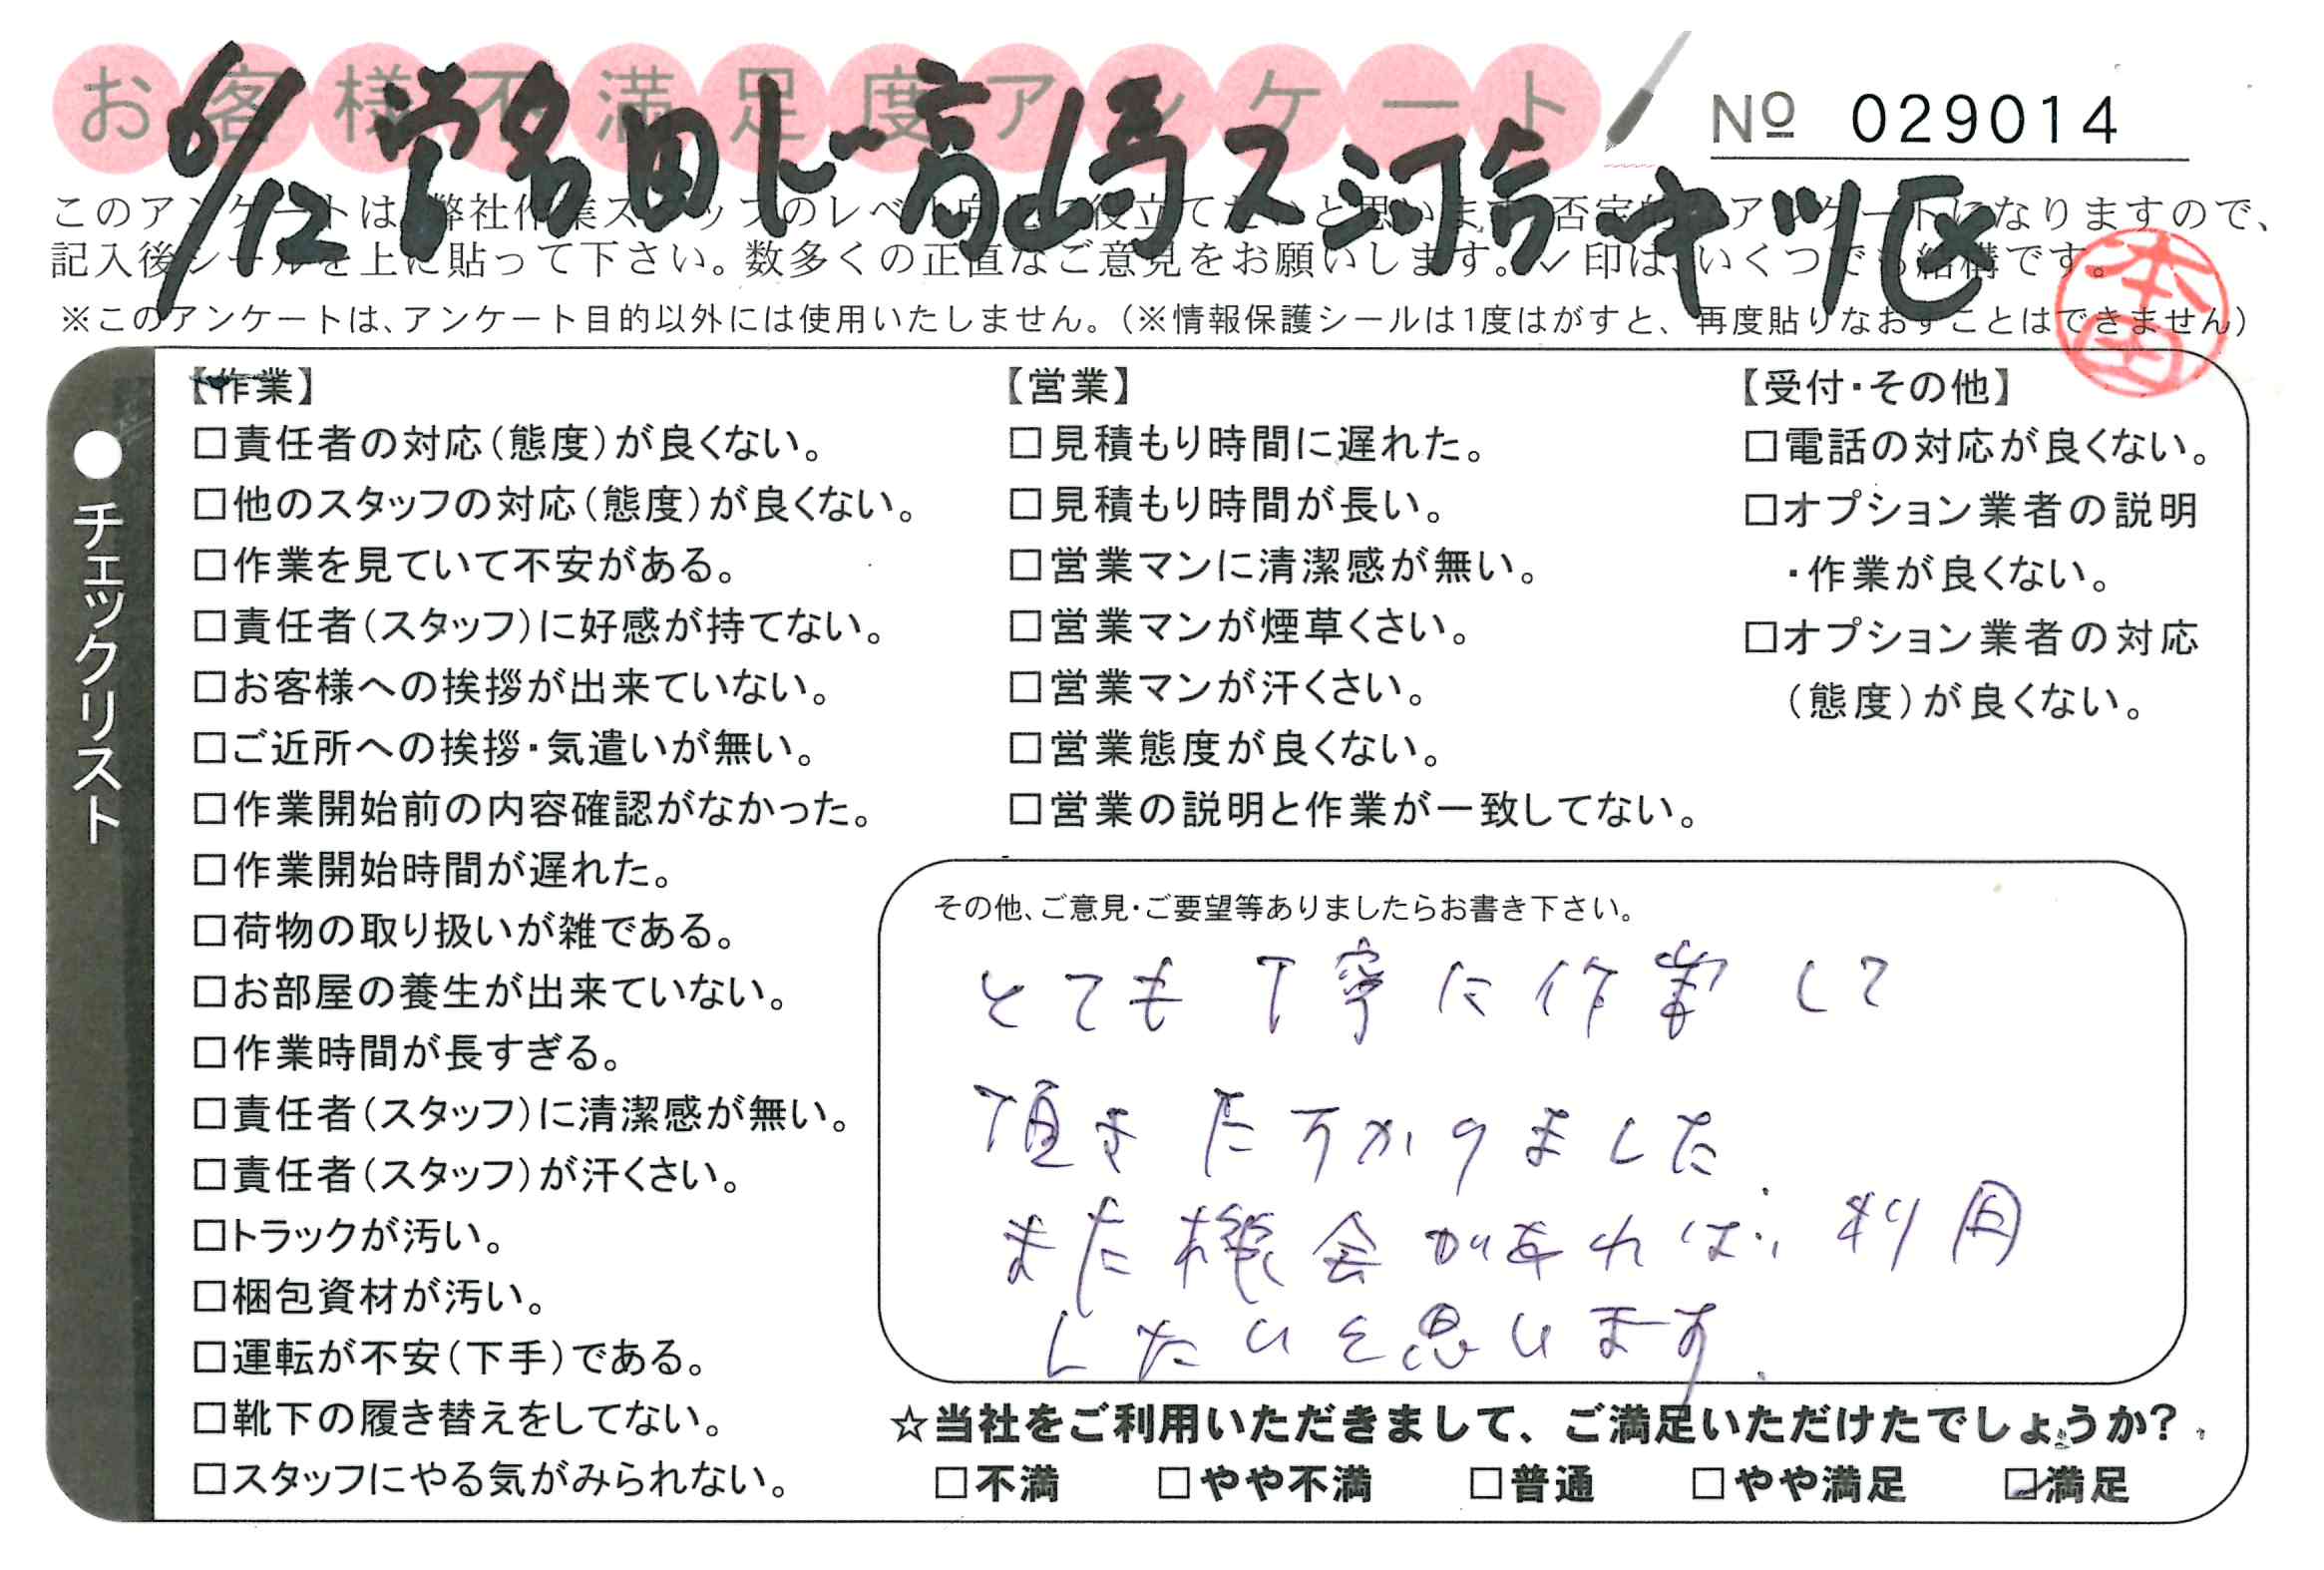 お客様不満足度アンケート
№ 029014
6/12 営名田ド高崎ス河合中川区
このアンケートは、弊社作業スタッフのレベル向上に役立てたいと思います。否定的なアンケートになりますので、
記入後シールを上に貼って下さい。数多くの正直なご意見をお願いします。✓印は、いくつでも結構です。
※このアンケートは、アンケート目的以外には使用いたしません。(※情報保護シールは1度はがすと、再度貼りなおすことはできません)
本田
●チェックリスト
【作業】
□責任者の対応(態度)が良くない。
□他のスタッフの対応(態度)が良くない。
□作業を見ていて不安がある。
□責任者(スタッフ)に好感が持てない。
□お客様への挨拶が出来ていない。
□ご近所への挨拶・気遣いが無い。
□作業開始前の内容確認がなかった。
□作業開始時間が遅れた。
□荷物の取り扱いが雑である。
□お部屋の養生が出来ていない。
□作業時間が長すぎる。
□責任者(スタッフ)に清潔感が無い。
□責任者(スタッフ)が汗くさい。
□トラックが汚い。
□梱包資材が汚い。
□運転が不安(下手)である。
□靴下の履き替えをしてない。
□スタッフにやる気がみられない。
【営業】
□見積もり時間に遅れた。
□見積もり時間が長い。
□営業マンに清潔感が無い。
□営業マンが煙草くさい。
□営業マンが汗くさい。
□営業態度が良くない。
□営業の説明と作業が一致してない。
【受付・その他】
□電話の対応が良くない。
□オプション業者の説明
・作業が良くない。
□オプション業者の対応
(態度)が良くない。
その他、ご意見・ご要望等ありましたらお書き下さい。
とても丁寧に作業して
頂きたすかりました
また機会があれば、利用
したいと思います.
☆当社をご利用いただきまして、ご満足いただけたでしょうか?
□不満 □やや不満 □普通 □やや満足 ☑満足